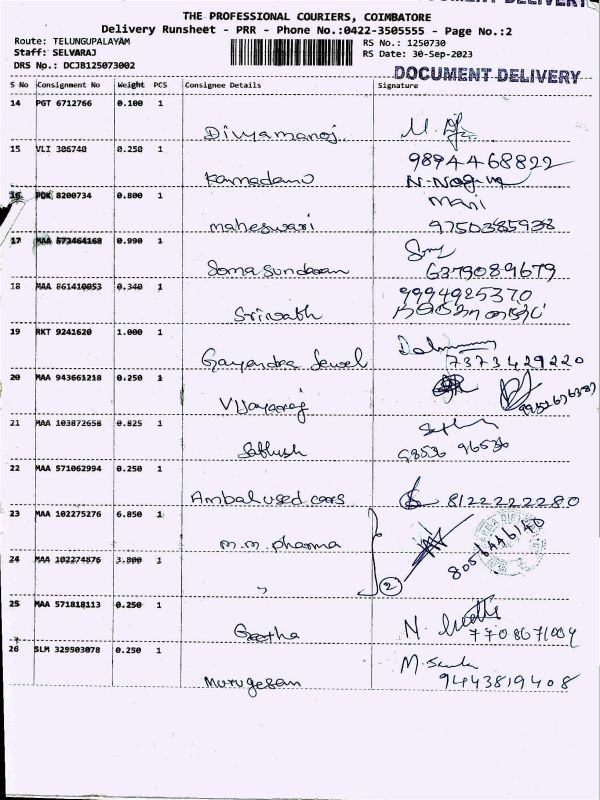 DOCUMENT DELIVERY
THE PROFESSIONAL COURIERS, COIMBATORE
Delivery Runsheet - PRR - Phone No.:0422-3505555 - Page No.:2
Route: TELUNGUPALAYAM
RS No.: 1250730
Staff: SELVARAJ
RS Date: 30-Sep-2023
DRS Np.: DCJB125073002
DOCUMENT DELIVERY
S No Consignment No Weight PCS Consignee Details Signature
14 PGT 6712766 0.100 1
Divyamanoj
15 VLI 306740 0.250 1
98944 68822
Kamadeno
16 PDK 8200734 0.800 1
mani
maheswari 9750385938
17 MAA 572464168 0.990 1
Somasundaram 6379089679
18 MAA 861410053 0.340 1
9994925370
Srivath
19 RKT 9241620 1.000 1
Gayendra Jewel 7373429220
20 MAA 943661218 0.250 1
Vijayaraj
21 MAA 103872658 0.825 1
Sathish 98536 96536
22 MAA 571062994 0.250 1
Ambal used cars 8122222280
23 MAA 102275276 6.850 1
m.m. pharma 8056446140
24 MAA 102274876 3.800 1
" 2
25 MAA 571818113 0.250 1
Geetha
26 SLM 329503078 0.250 1
Murugesan 9443819408